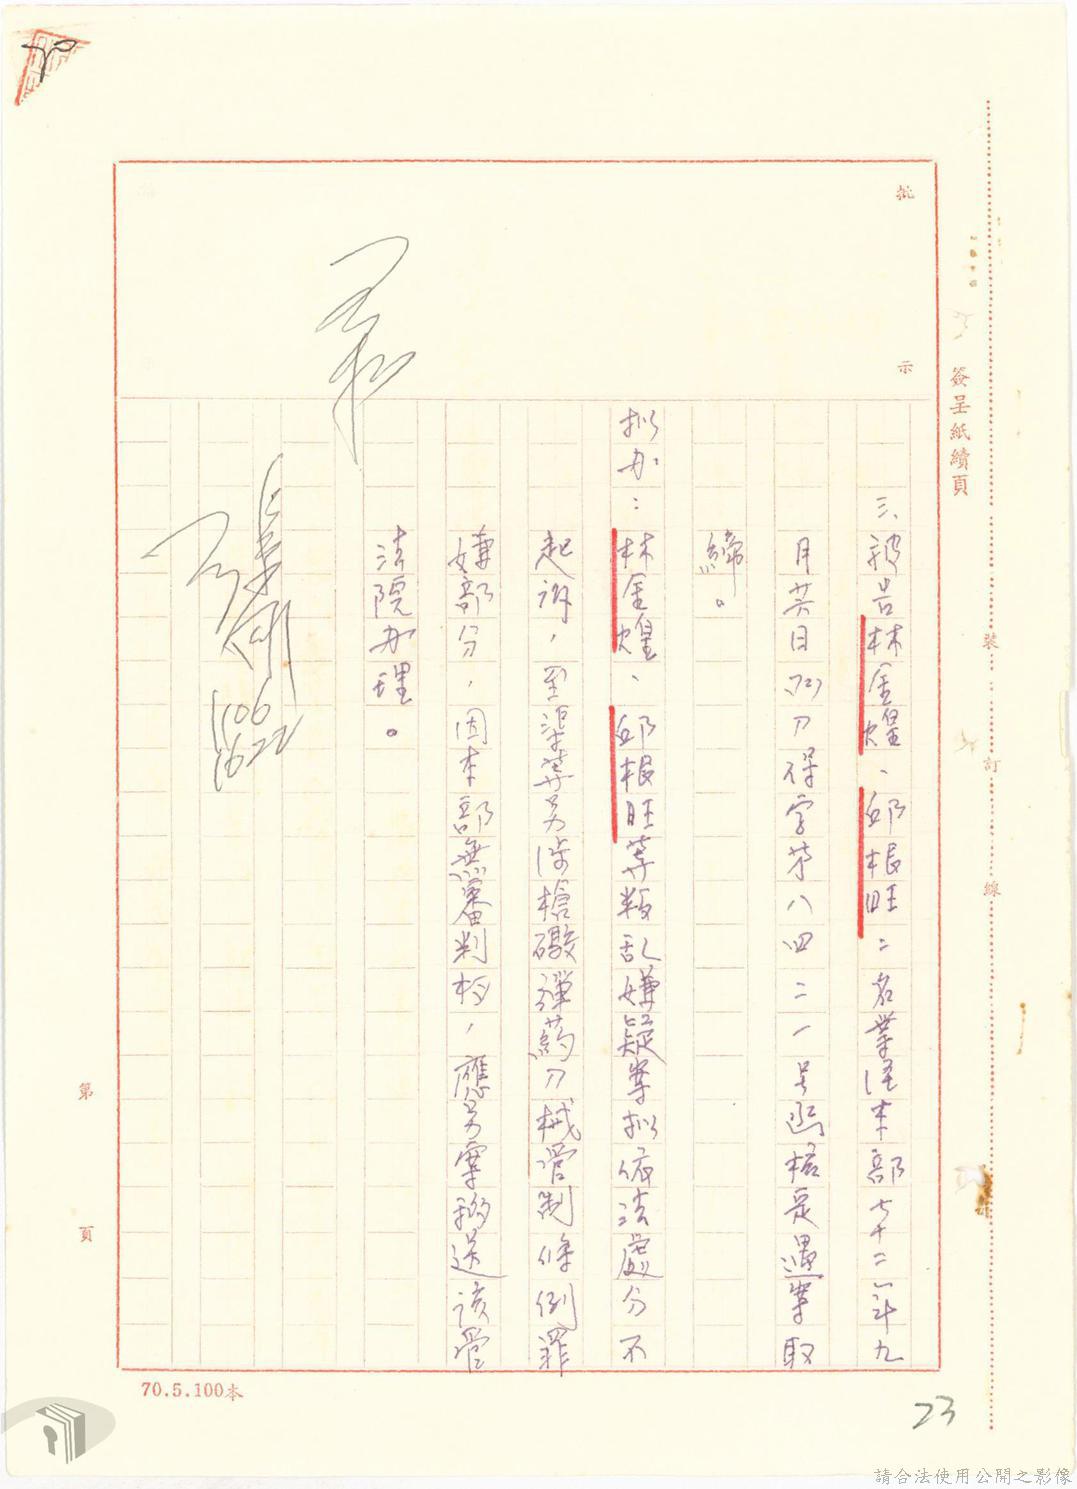 批示
簽呈紙續頁
三、被告林金煌、邱根旺二名業經本部七十二年九
月廿日(72)刀保字第八四二一号函核定遇案取
締。
拟办：林金煌、邱根旺等叛乱嫌疑案拟依法處分不
起訴，至渠等另涉槍礮彈葯刀械管制條例罪
嫌部分，因本部無審判权，應另案移送該管
法院办理。
1006
1622
裝訂線
第 頁
70.5.100本
23
請合法使用公開之影像